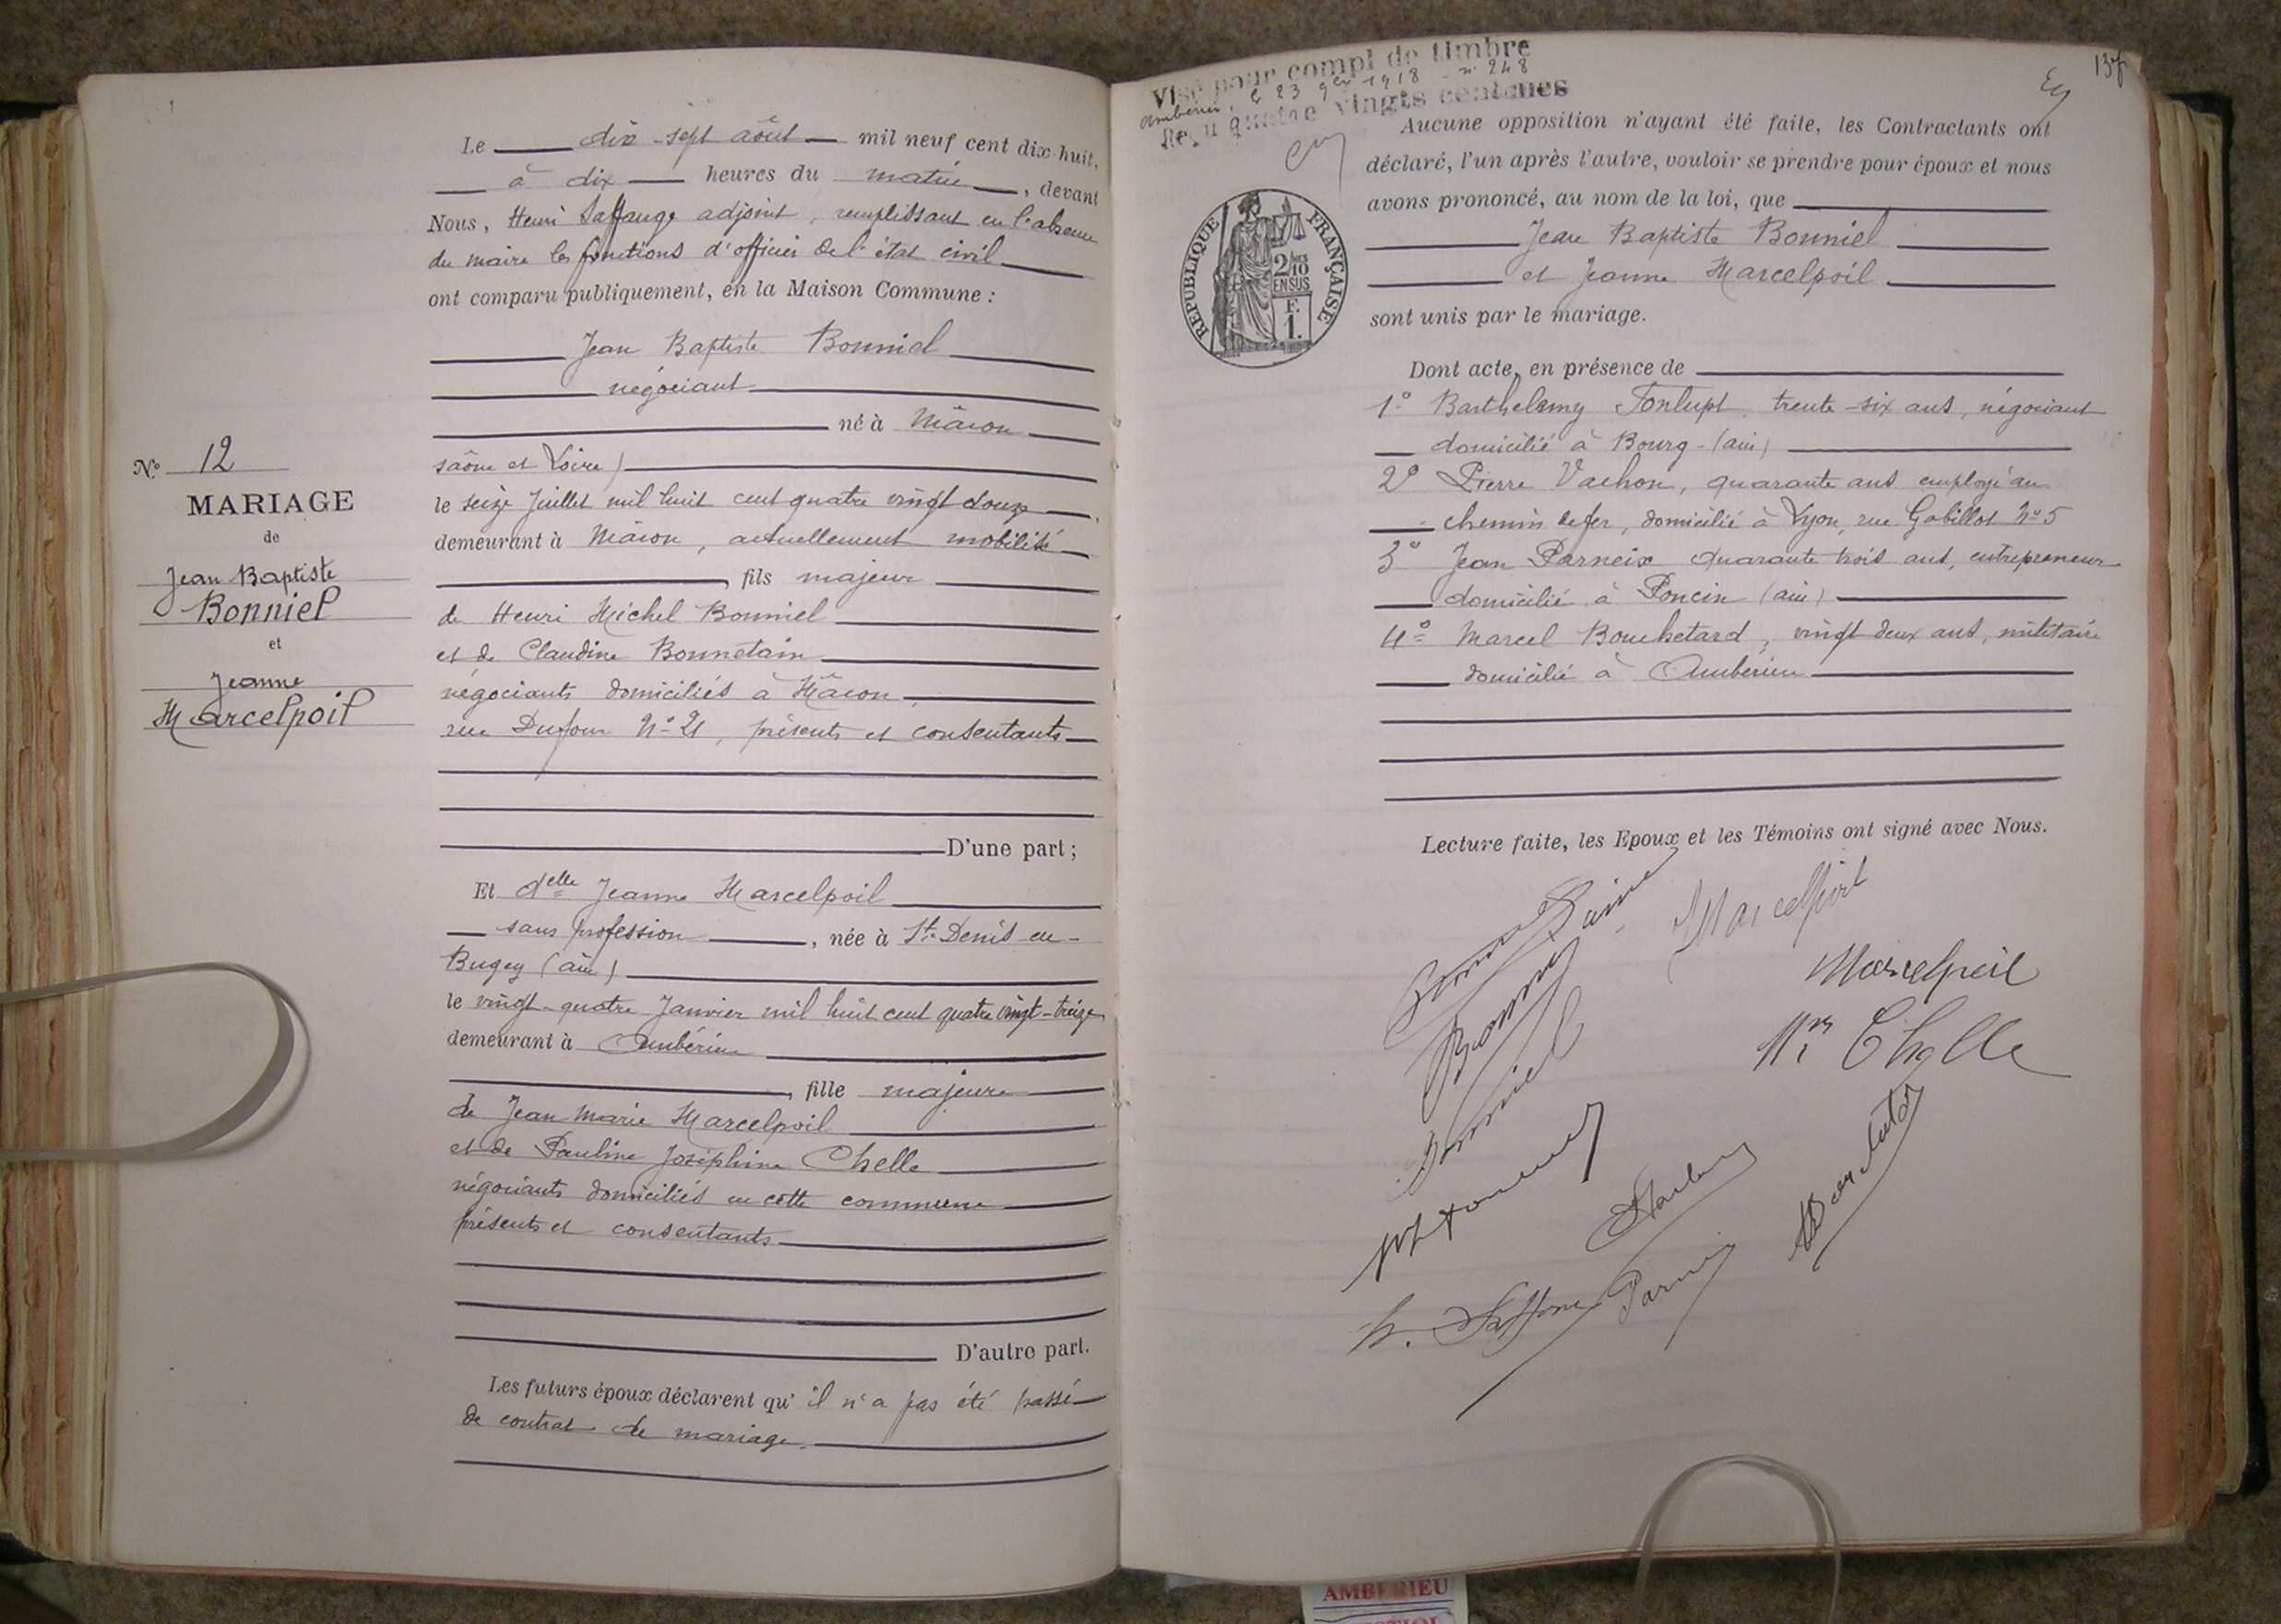 Le dix-sept août mil neuf cent dix-huit,
à dix heures du matin, devant
Nous, Henri Saffange adjoint, remplissant en l'absence
du maire les fonctions d'officier de l'état civil
ont comparu publiquement, en la Maison Commune :
Jean Baptiste Bonniel
négociant
né à Mâcon
saône et Loire)
le seize Juillet mil huit cent quatre vingt douze
demeurant à Mâcon, actuellement mobilisé
fils majeur
de Henri Michel Bonniel
et de Claudine Bonnetain
négociants domiciliés à Mâcon,
rue Dufour N° 21, présents et consentants
D'une part ;
Et delle Jeanne Marcelpoil
sans profession, née à St Denis en-
Bugey (ain)
le vingt-quatre Janvier mil huit cent quatre vingt-treize
demeurant à Ambérieu
, fille majeure
de Jean Marie Marcelpoil
et de Pauline Joséphine Chelle
négociants domiciliés en cette commune
présents et consentants
D'autre part.
Les futurs époux déclarent qu'il n'a pas été passé
de contrat de mariage.
N° 12
MARIAGE
de
Jean Baptiste
Bonniel
et
Jeanne
Marcelpoil
137
Visé pour compl de timbre
Ambérieu, le 23 9bre 1918 n° 248
Reçu quatre vingts centimes
RÉPUBLIQUE FRANÇAISE
2/10
EN SUS
F.
1.
Aucune opposition n'ayant été faite, les Contractants ont
déclaré, l'un après l'autre, vouloir se prendre pour époux et nous
avons prononcé, au nom de la loi, que
Jean Baptiste Bonniel
et Jeanne Marcelpoil
sont unis par le mariage.
Dont acte, en présence de
1° Barthelemy Fonlupt, trente-six ans, négociant
domicilié à Bourg-(ain)
2° Pierre Vachon, quarante ans employé au
chemin de fer, domicilié à Lyon, rue Gabillot N° 5
3° Jean Parneix quarante trois ans, entrepreneur
domicilié à Poncin (ain)
4° Marcel Bouchetard, vingt deux ans, militaire
domicilié à Ambérieu
Lecture faite, les Epoux et les Témoins ont signé avec Nous.
Marcelpoil
Marcelpoil
Bonniel
Chelle
AMBERIEU